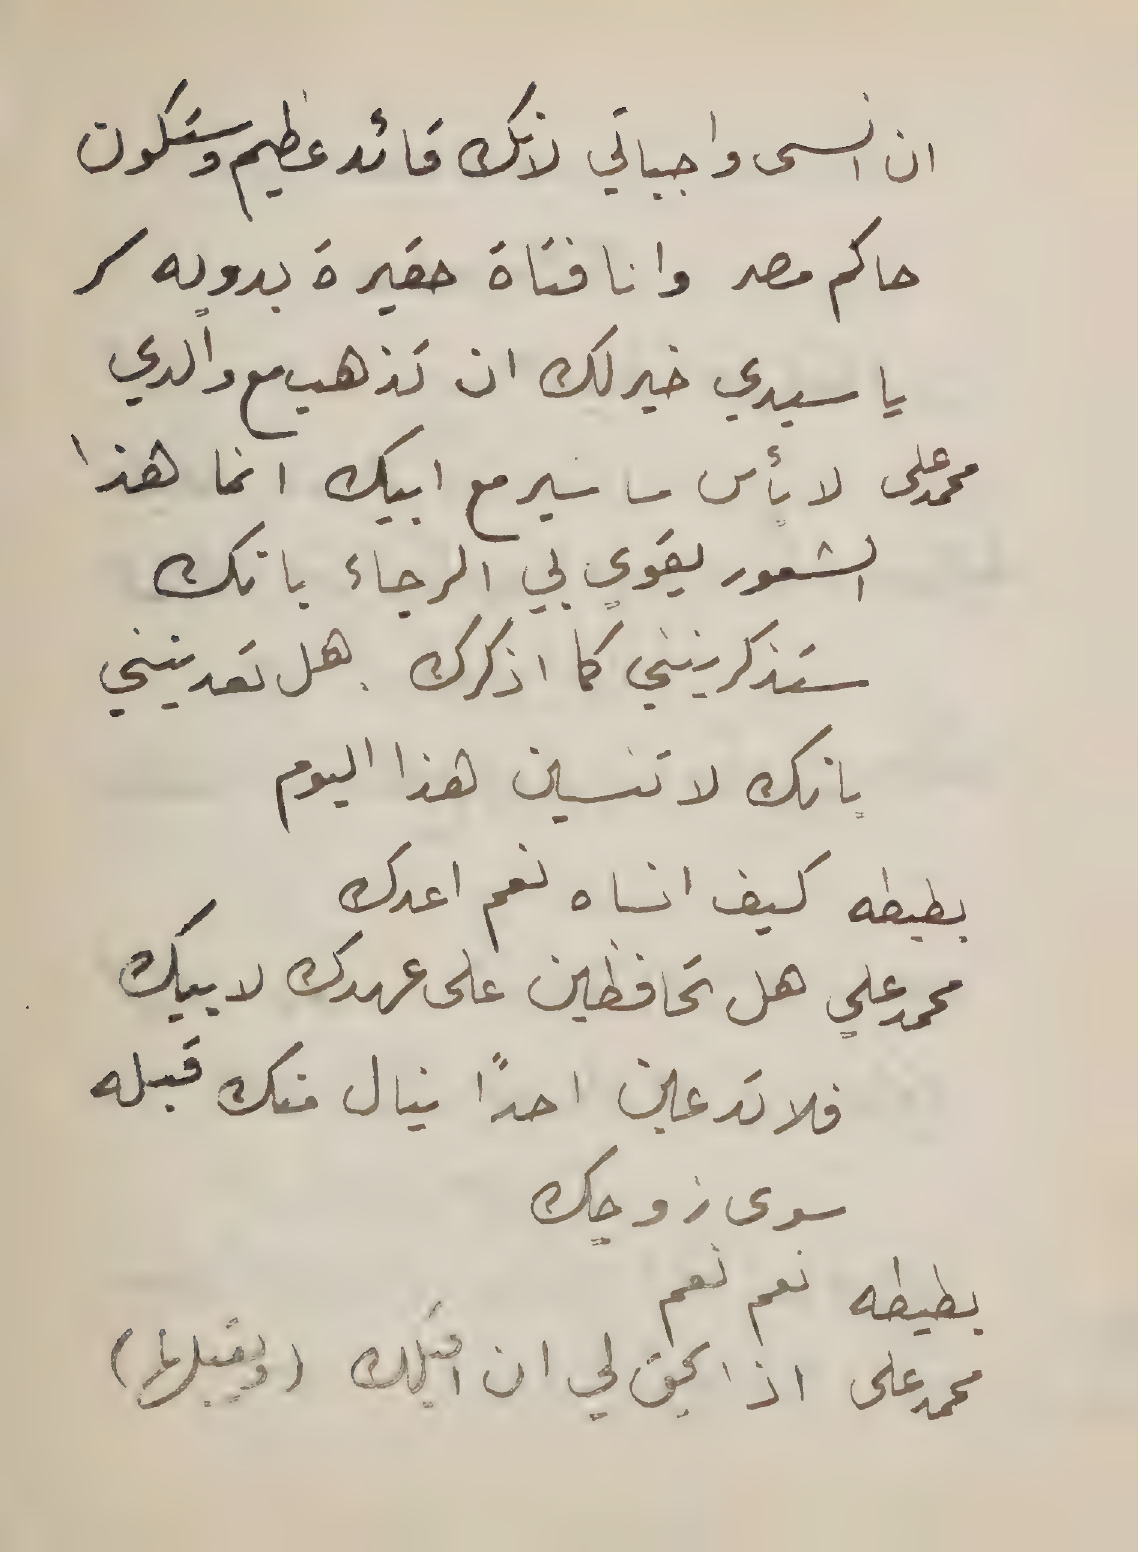 ان انسى واجباتي لانك قائد عظيم وستكون
حاكم مصر وانا فتاة حقيرة بدويه
يا سيدي خير لك ان تذهب مع والدي
محمد علي لا بأس ساسير مع ابيك انما هذا
الشعور يقوي بي الرجاء بانك
ستذكرينني كما اذكرك هل تعدينني
بانك لا تنسين هذا اليوم
بطيطه كيف انساه نعم اعدك
محمد علي هل تحافظين على عهدك لابيك
فلا تدعين احدًا ينال منك قبله
سوى زوجك
بطيطه نعم نعم
محمد على اذا يحق لي ان اقبلك (ويقبلها)